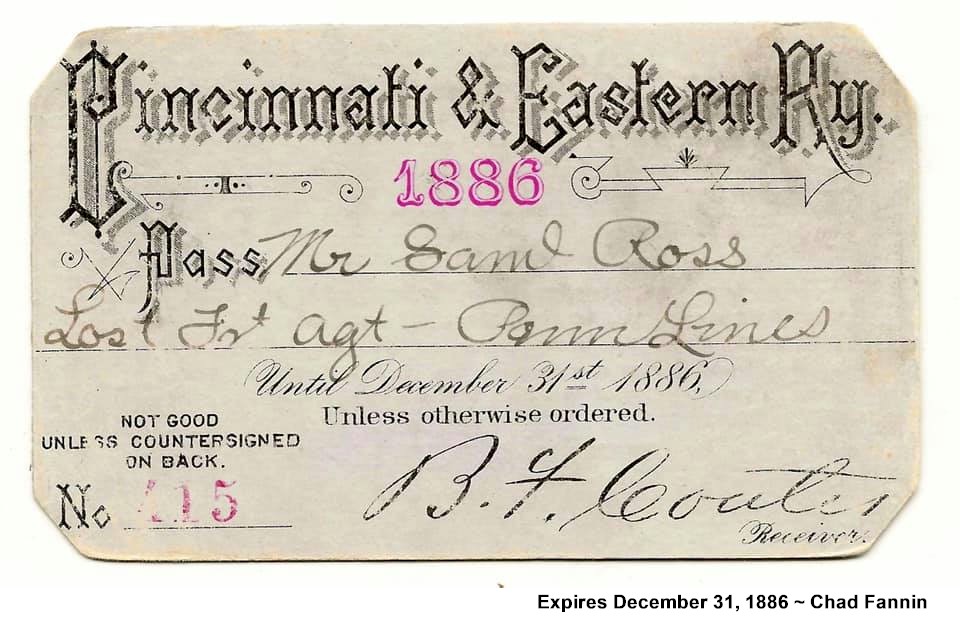 Cincinnati & Eastern Ry.
1886
Pass Mr Saml Ross
Lost Frt Agt - Penn Lines
Until December 31st 1886,
Unless otherwise ordered.
NOT GOOD
UNLESS COUNTERSIGNED
ON BACK.
No 415
B. F. Coates
Receiver.
Expires December 31, 1886 ~ Chad Fannin